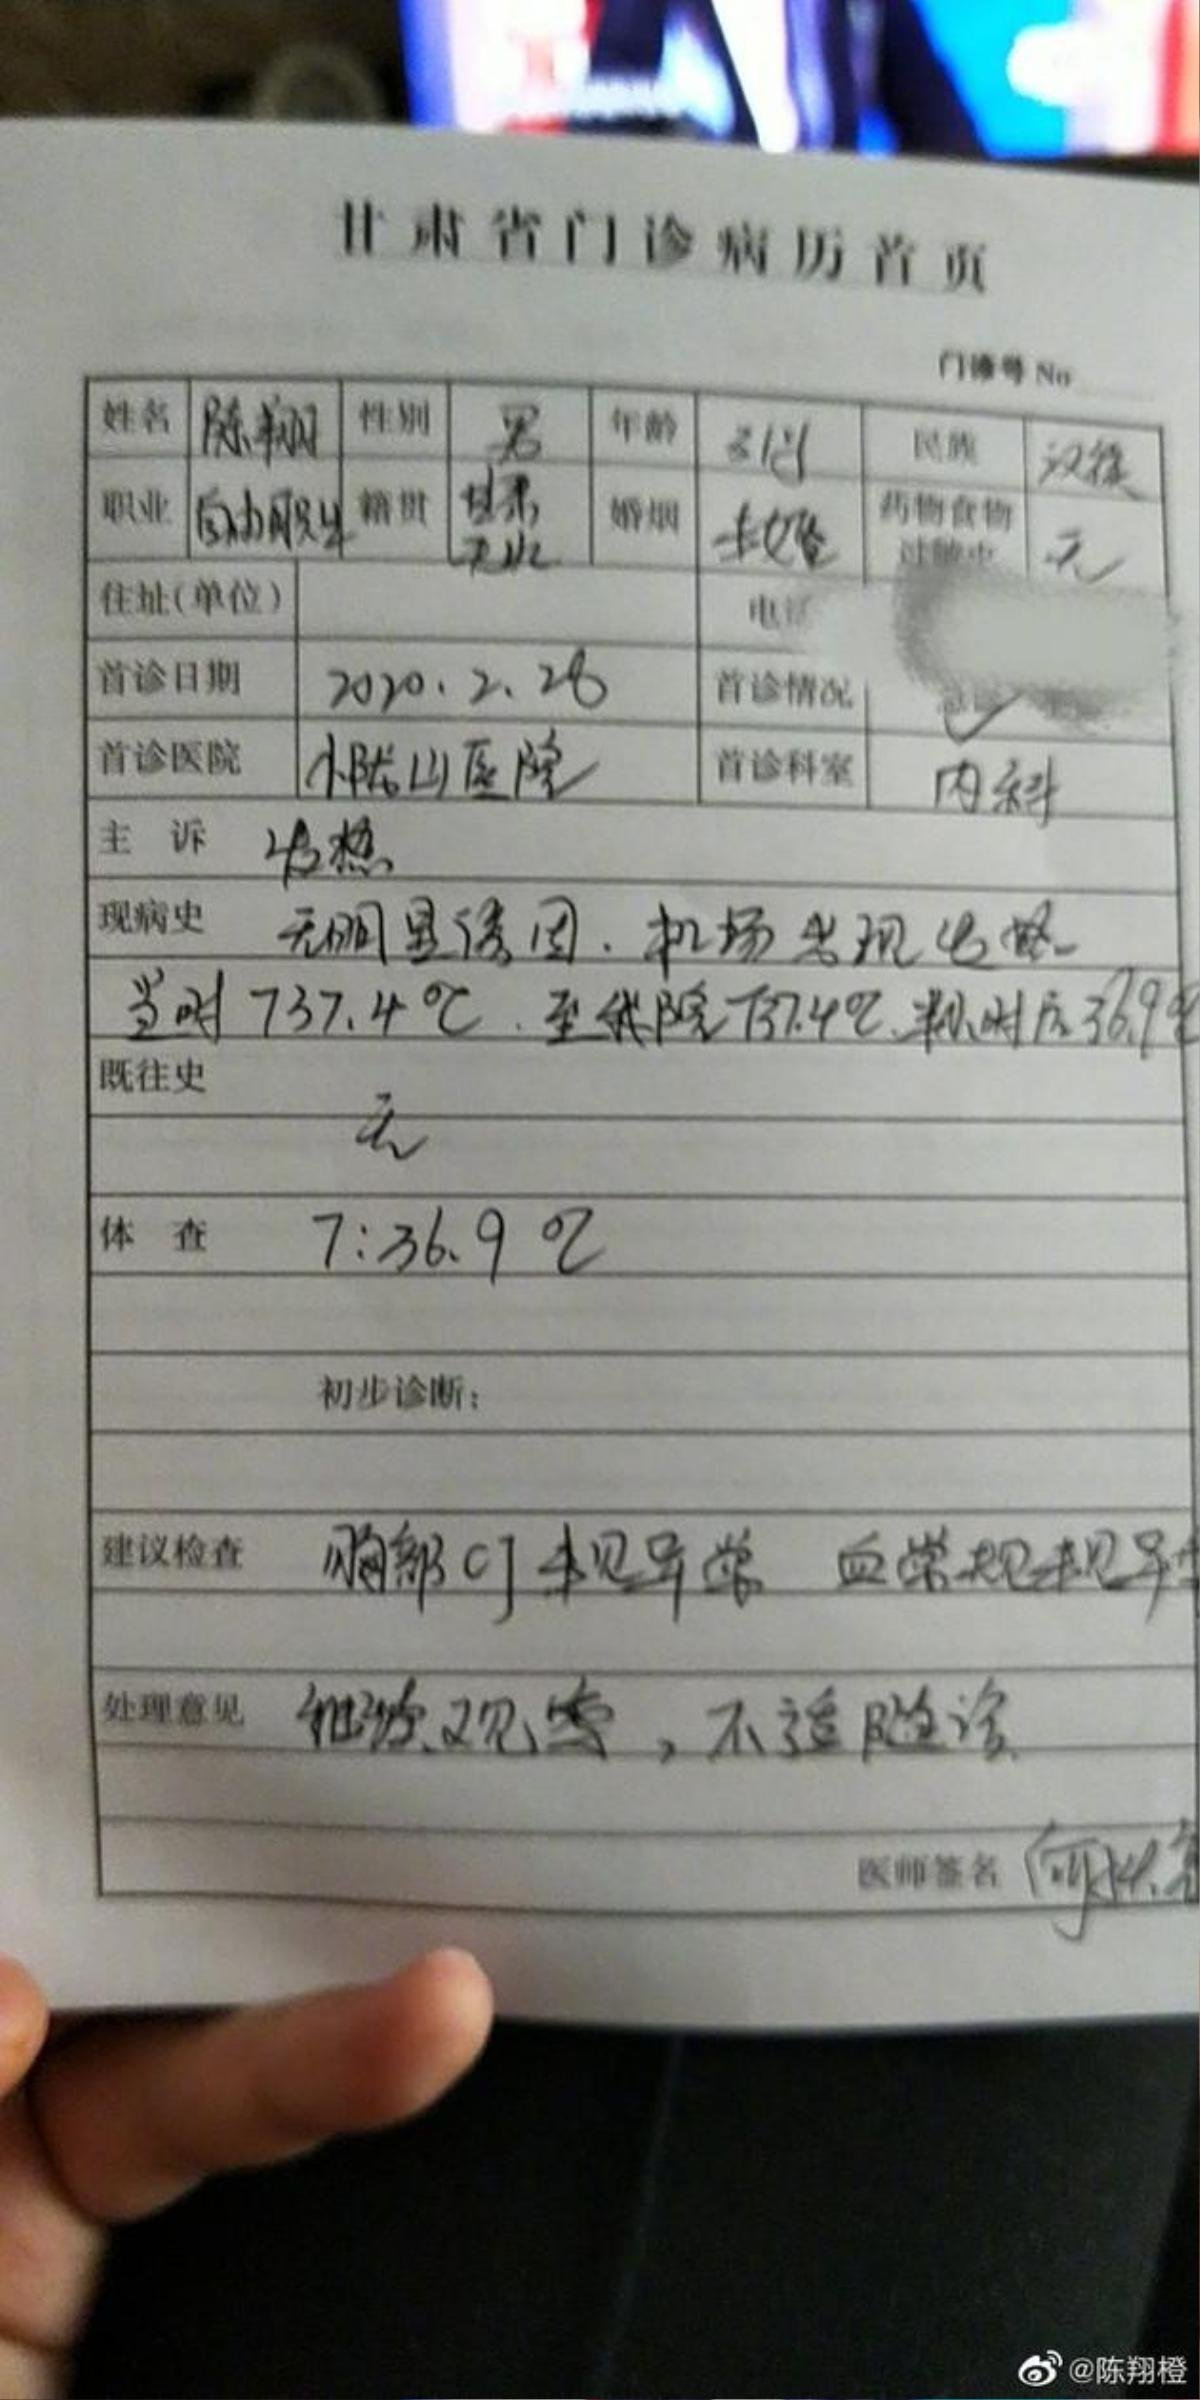 甘肃省门诊病历首页
门诊号 No
姓名 陈翔 性别 男 年龄 31岁 民族 汉族
职业 自由职业 籍贯 甘肃天水 婚姻 未婚 药物食物过敏史 无
住址(单位) 电话
首诊日期 2020.2.28 首诊情况
首诊医院 小陇山医院 首诊科室 内科
主 诉 发热
现病史 无明显诱因.机场发现发热
当时T37.4℃.至我院T37.4℃.半小时后36.9℃
既往史
无
体 查 T:36.9℃
初步诊断:
建议检查 胸部CT未见异常 血常规未见异常
处理意见 继续观察,不适随诊
医师签名 何
@陈翔橙